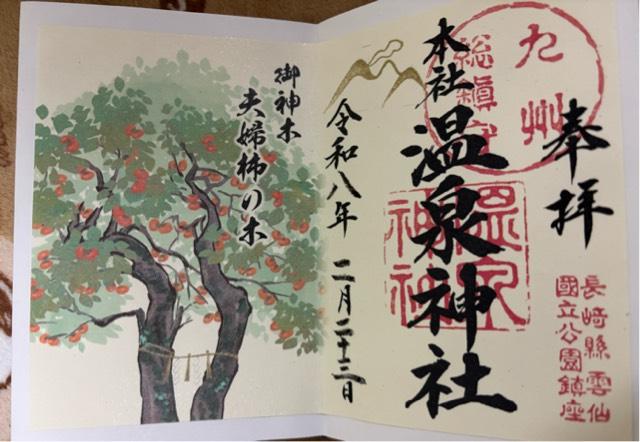 奉拝
長崎縣雲仙
國立公園鎮座
九州
総鎮守
本社
温泉神社
温泉
神社
令和八年 二月二十三日
御神木
夫婦柿の木